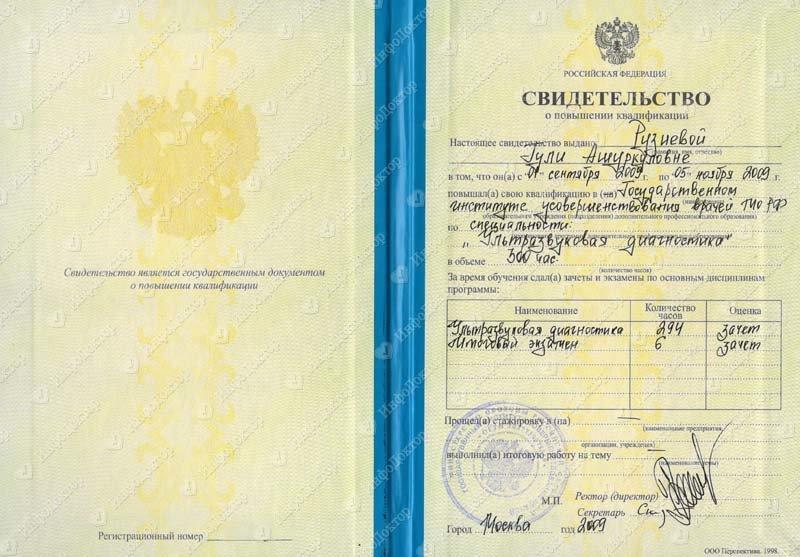 Свидетельство является государственным документом
о повышении квалификации
Регистрационный номер
РОССИЙСКАЯ ФЕДЕРАЦИЯ
СВИДЕТЕЛЬСТВО
о повышении квалификации
Настоящее свидетельство выдано Рузиевой
(фамилия, имя, отчество)
Гули Ашуркуловне
в том, что он(а) с 01 сентября 2009 г. по 05 ноября 2009 г.
повышал(а) свою квалификацию в (на) Государственном
(наименование
институте усовершенствования врачей МО РФ
образовательного учреждения (подразделения) дополнительного профессионального образования)
по специальности:
"Ультразвуковая диагностика"
в объеме 300 час.
(количество часов)
За время обучения сдал(а) зачеты и экзамены по основным дисциплинам
программы:
Наименование Количество часов Оценка
Ультразвуковая диагностика 294 зачет
Итоговый экзамен 6 зачет
Прошел(а) стажировку в (на)
(наименование предприятия,
организации, учреждения)
выполнил(а) итоговую работу на тему
(наименование темы)
М.П. Ректор (директор)
Секретарь
Город Москва год 2009
ООО Перспектива. 1998.
ИнфоДоктор